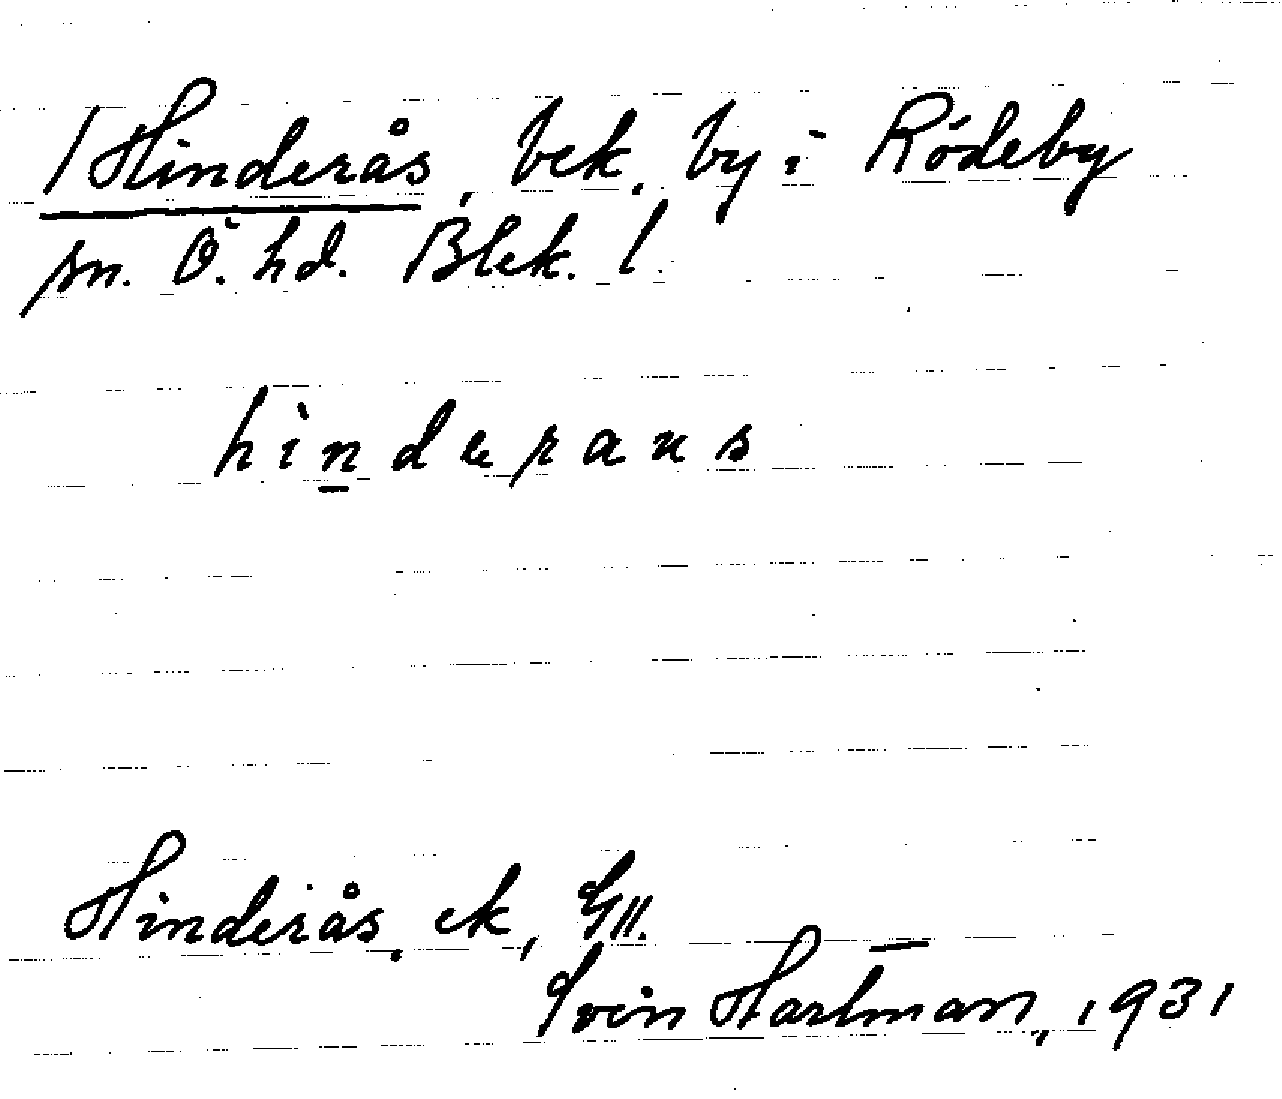 /Hinderås, bek. by i Rödeby
sn. Ö. hd. Blek. /
hinderaus
Hinderås, ek, Gll.
Sven Hartman, 1931